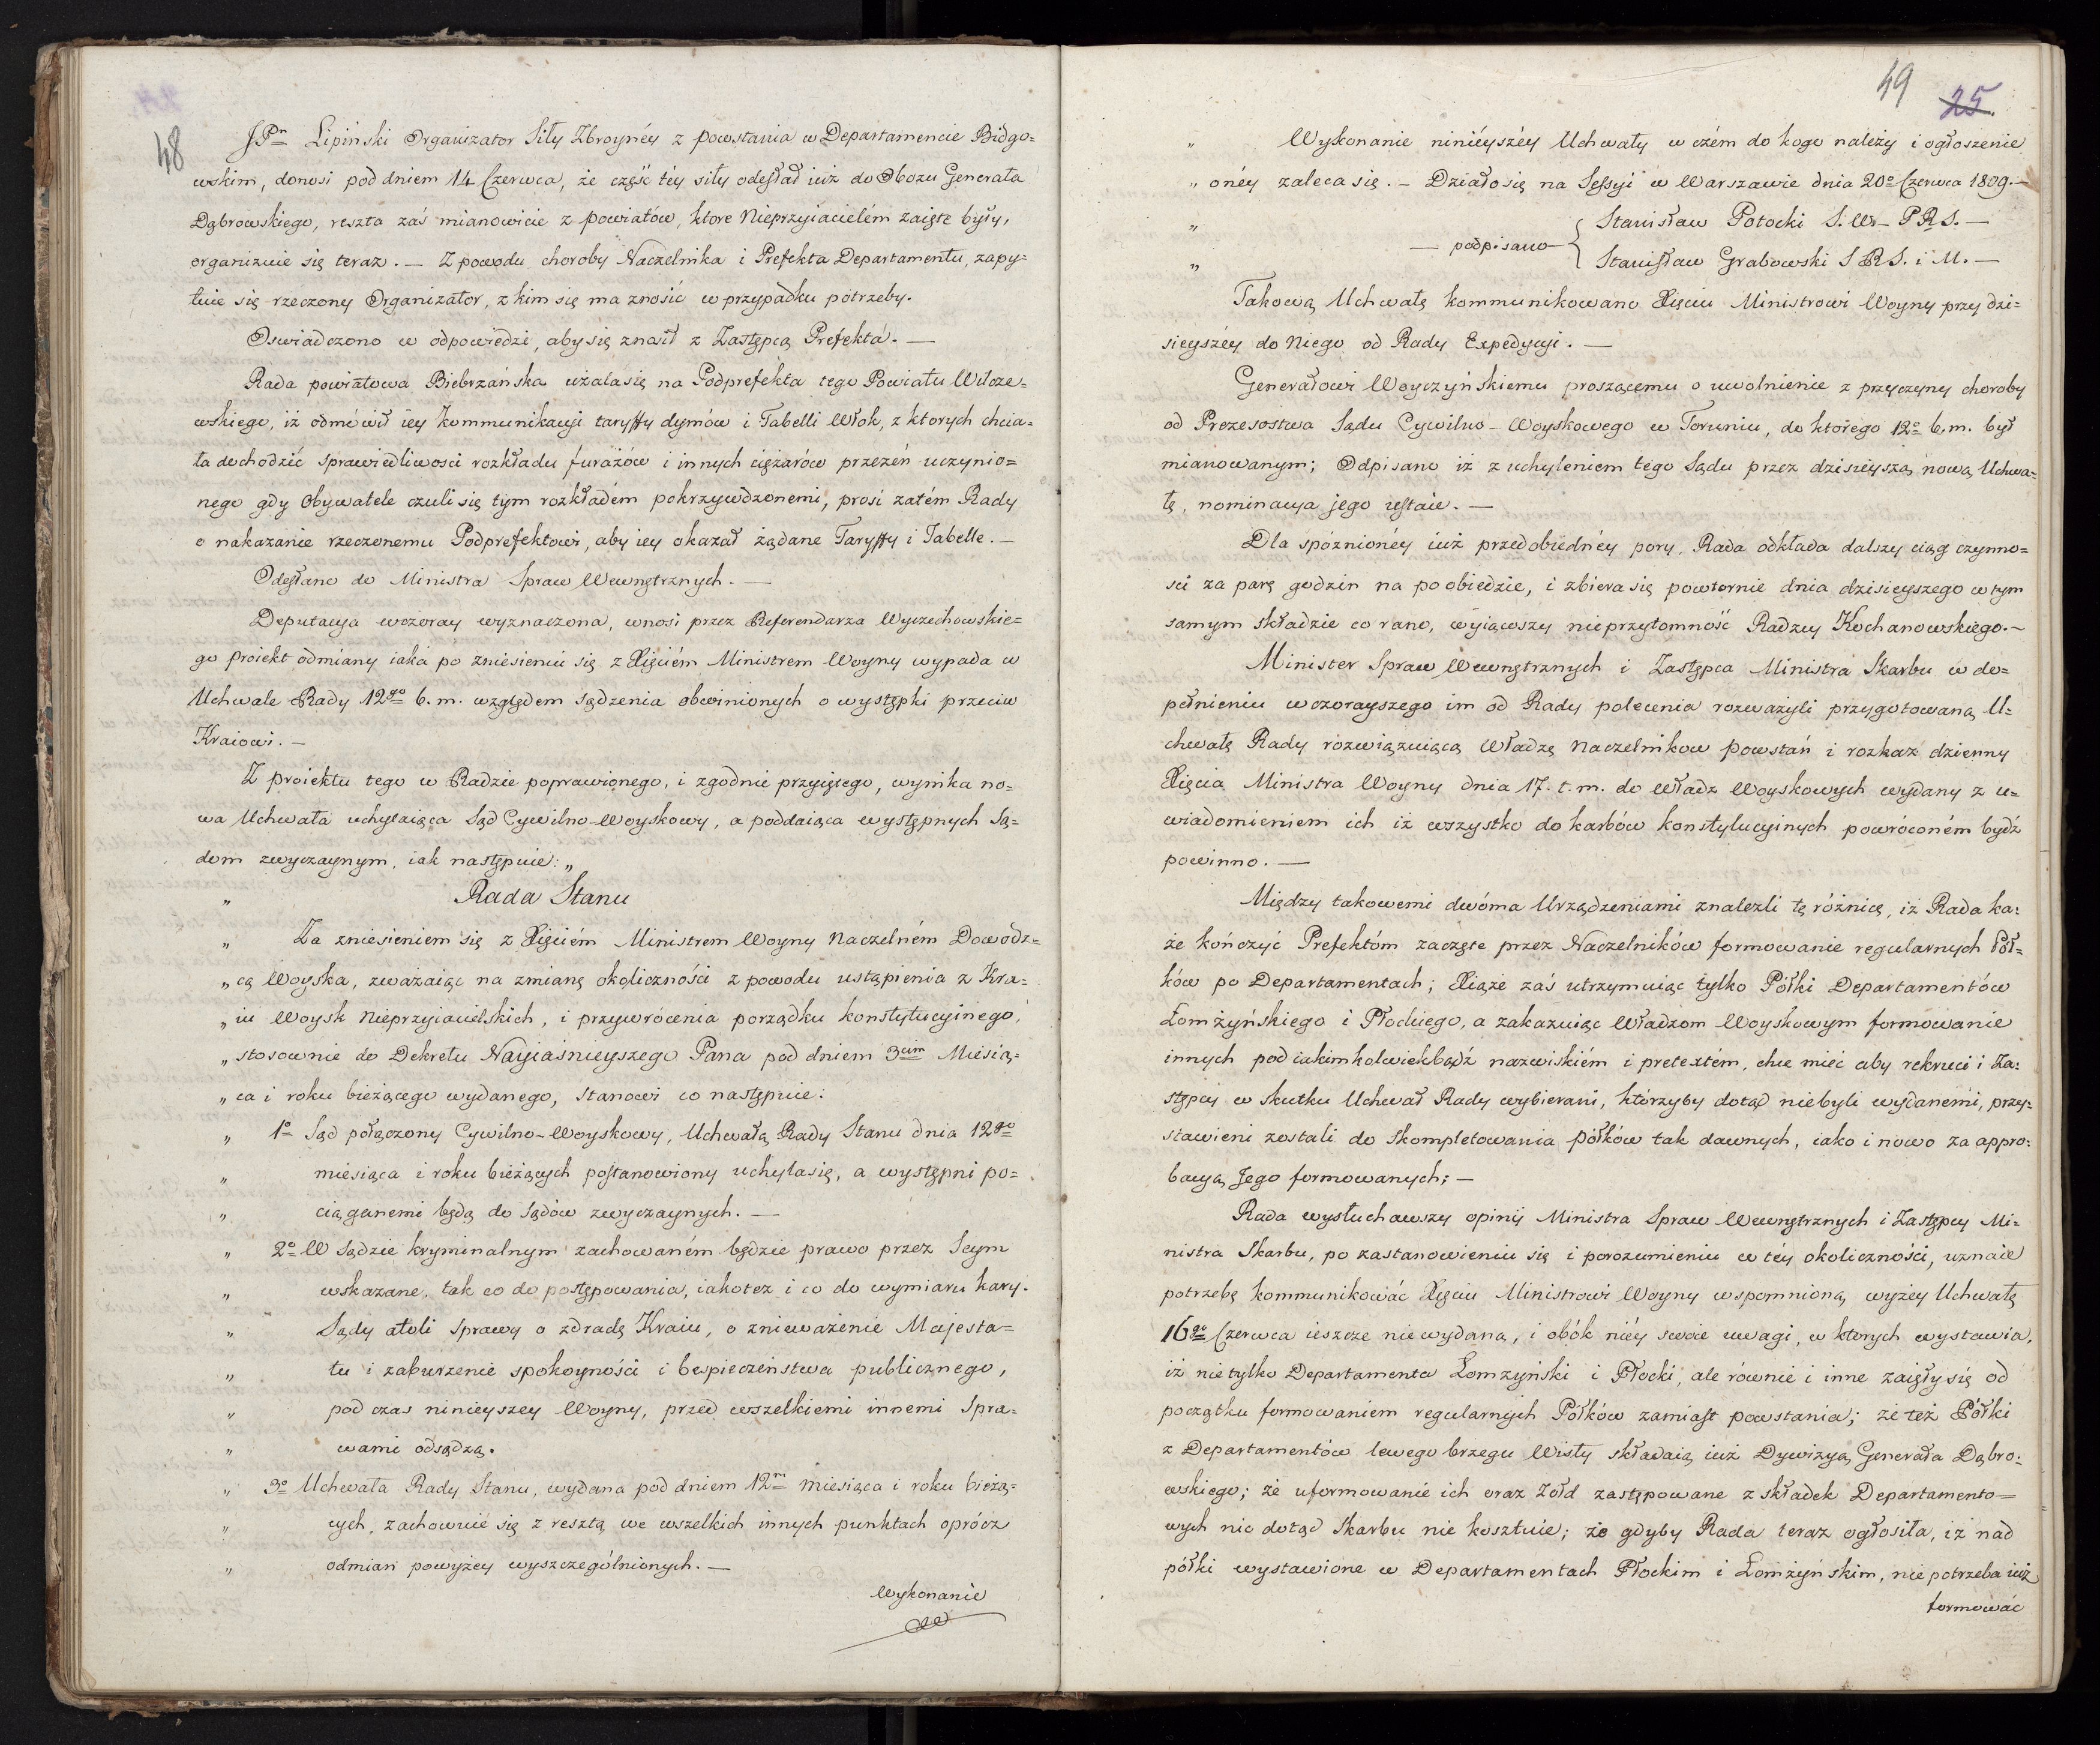 48
JPn Lipiński Organizator Siły Zbroynéy z powstania w Departamencie Bidgo=
wskim, donosi pod dniem 14 Czerwca, że część téy siły odesłał iuż do Obozu Generała
Dąbrowskiego, reszta zaś mianowicie z powiatów, ktore Nieprzyiacielém zaięte były,
organizuie się teraz. — Z powodu choroby Naczelnika i Prefekta Departamentu, zapy=
tuie się rzeczony Organizator, z kim się ma znosić w przypadku potrzeby.
Oswiadczono w odpowiedzi, aby się znosił z Zastępcą Prefekta. —
Rada powiatowa Biebrzańska użala się na Podprefekta tego Powiatu Wilcze=
wskiego, iż odmówił iey kommunikacyi taryffy dymów i Tabelli Włok, z ktorych chcia=
ła dochodzić sprawiedliwosci rozkładu furażów i innych ciężarów przezeń uczynio=
nego gdy Obywatele czuli się tym rozkładém pokrzywdzonemi, prosi zatém Rady
o nakazanie rzeczonemu Podprefektowi, aby iey okazał żądane Taryffy i Tabelle. —
Odesłano do Ministra Spraw Wewnętrznych. —
Deputacya wczoray wyznaczona, wnosi przez Referendarza Wyczechowskie=
go proiekt odmiany iaka po zniesieniu się z Xięciém Ministrem Woyny wypada w
Uchwale Rady 12go b. m. względem sądzenia obwinionych o występki przeciw
Kraiowi. —
Z proiektu tego w Radzie poprawionego, i zgodnie przyiętego, wynika no=
wa Uchwała uchylaiąca Sąd Cywilno-Woyskowy, a poddaiąca występnych Są=
dom zwyczaynym, iak następuie: „
„ Rada Stanu
„ Za zniesieniem się z Xięciém Ministrem Woyny Naczelném Dowodz=
„ cą Woyska, zważaiąc na zmianę okoliczności z powodu ustąpienia z Kra=
„ iu Woysk Nieprzyiacielskich, i przywrócenia porządku konstytucyinego,
„ stosownie do Dekretu Nayiaśnieyszego Pana pod dniem 3cim Miesią=
„ ca i roku bieżącego wydanego, stanowi co następuie:
„ 1o Sąd połączony Cywilno-Woyskowy, Uchwałą Rady Stanu dnia 12go
„ miesiąca i roku bieżących postanowiony uchyla się, a występni po=
„ ciąganemi będą do Sądów zwyczaynych. —
„ 2o W Sądzie kryminalnym zachowaném będzie prawo przez Seym
„ wskazane, tak co do postępowania, iakotez i co do wymiaru kary.
„ Sądy atoli sprawy o zdradę Kraiu, o znieważenie Majesta=
„ tu i zaburzenie spokoyności i bespieczeństwa publicznego,
„ pod czas ninieyszey Woyny, przed wszelkiemi innemi Spra=
„ wami odsądzą.
„ 3o Uchwała Rady Stanu, wydana pod dniem 12m miesiąca i roku bieżą=
„ cych, zachowuie się z resztą we wszelkich innych punktach oprócz
„ odmian powyżey wyszczególnionych. —
Wykonanie
49 25.
„ Wykonanie ninieyszéy Uchwały w czém do kogo należy i ogłoszenie
„ onéy zaleca się. — Działo się na Sessyi w Warszawie dnia 20o Czerwca 1809. —
„ Stanisław Potocki S. W— P R S. —
— podpisano —
„ Stanisław Grabowski S R S. i M. —
Takową Uchwałę kommunikowano Xięciu Ministrowi Woyny przy dzi=
sieyszéy do Niego od Rady Expedycyi. —
Generałowi Woyczyńskiemu proszącemu o uwolnienie z przyczyny choroby
od Prezesostwa Sądu Cywilno-Woyskowego w Toruniu, do którego 12o b. m. był
mianowanym; Odpisano iż z uchyleniem tego Sądu przez dzisieyszą nową Uchwa=
łę, nominacya jego ustaie. —
Dla spóznionéy iuż przedobiednéy pory, Rada odkłada dalszy ciąg czynno=
ści za parę godzin na poobiedzie, i zbiera się powtornie dnia dzisieyszego w tym
samym składzie co rano, wyiąwszy nieprzytomność Radzcy Kochanowskiego. —
Minister Spraw Wewnętrznych i Zastępca Ministra Skarbu w do=
pełnieniu wczorayszego im od Rady polecenia rozważyli przygotowaną U=
chwałę Rady rozwiązuiącą władzę Naczelnikow powstań i rozkaz dzienny
Xięcia Ministra Woyny dnia 17. t. m. do Władz Woyskowych wydany z u=
wiadomieniem ich iż wszystko do karbów konstytucyinych powróconém bydź
powinno. —
Między takowemi dwóma Urządzeniami znalezli tę różnicę, iż Rada ka=
że kończyć Prefektóm zaczęte przez Naczelników formowanie regularnych Póŀ=
ków po Departamentach; Xiąże zaś utrzymuiąc tylko Półki Departamentów
Łomżyńskiego i Płockiego, a zakazuiąc Władzom Woyskowym formowanie
innych pod iakimkolwiekbądź nazwiskiém i pretextém, chce mieć aby rekruci i Za=
stępcy w skutku Uchwał Rady wybierani, którzyby dotąd niebyli wydanemi, przy=
stawieni zostali do skompletowania półków tak dawnych, iako i nowo za appro=
bacyą Jego formowanych; —
Rada wysłuchawszy opinij Ministra Spraw Wewnętrznych i Zastępcy Mi=
nistra Skarbu, po zastanowieniu się i porozumieniu w téy okoliczności, uznaie
potrzebę kommunikować Xięciu Ministrowi Woyny wspomnioną wyżey Uchwałę
16go Czerwca ieszcze niewydaną, i obók niéy swoie uwagi, w ktorych wystawia,
iż nietylko Departamenta Łomzyński i Płocki, ale równie i inne zaięły się od
początku formowaniem regularnych Półków zamiast powstania; że też Półki
z Departamentów lewego brzegu Wisły składaią iuż Dywizyą Generała Dąbro=
wskiego; że uformowanie ich oraz Żołd zastępowane z składek Departamento=
wych nic dotąd Skarbu nie kosztuie; że gdyby Rada teraz ogłosiła, iż nad
półki wystawione w Departamentach Płockim i Łomżyńskim, nie potrzeba iuż
formować